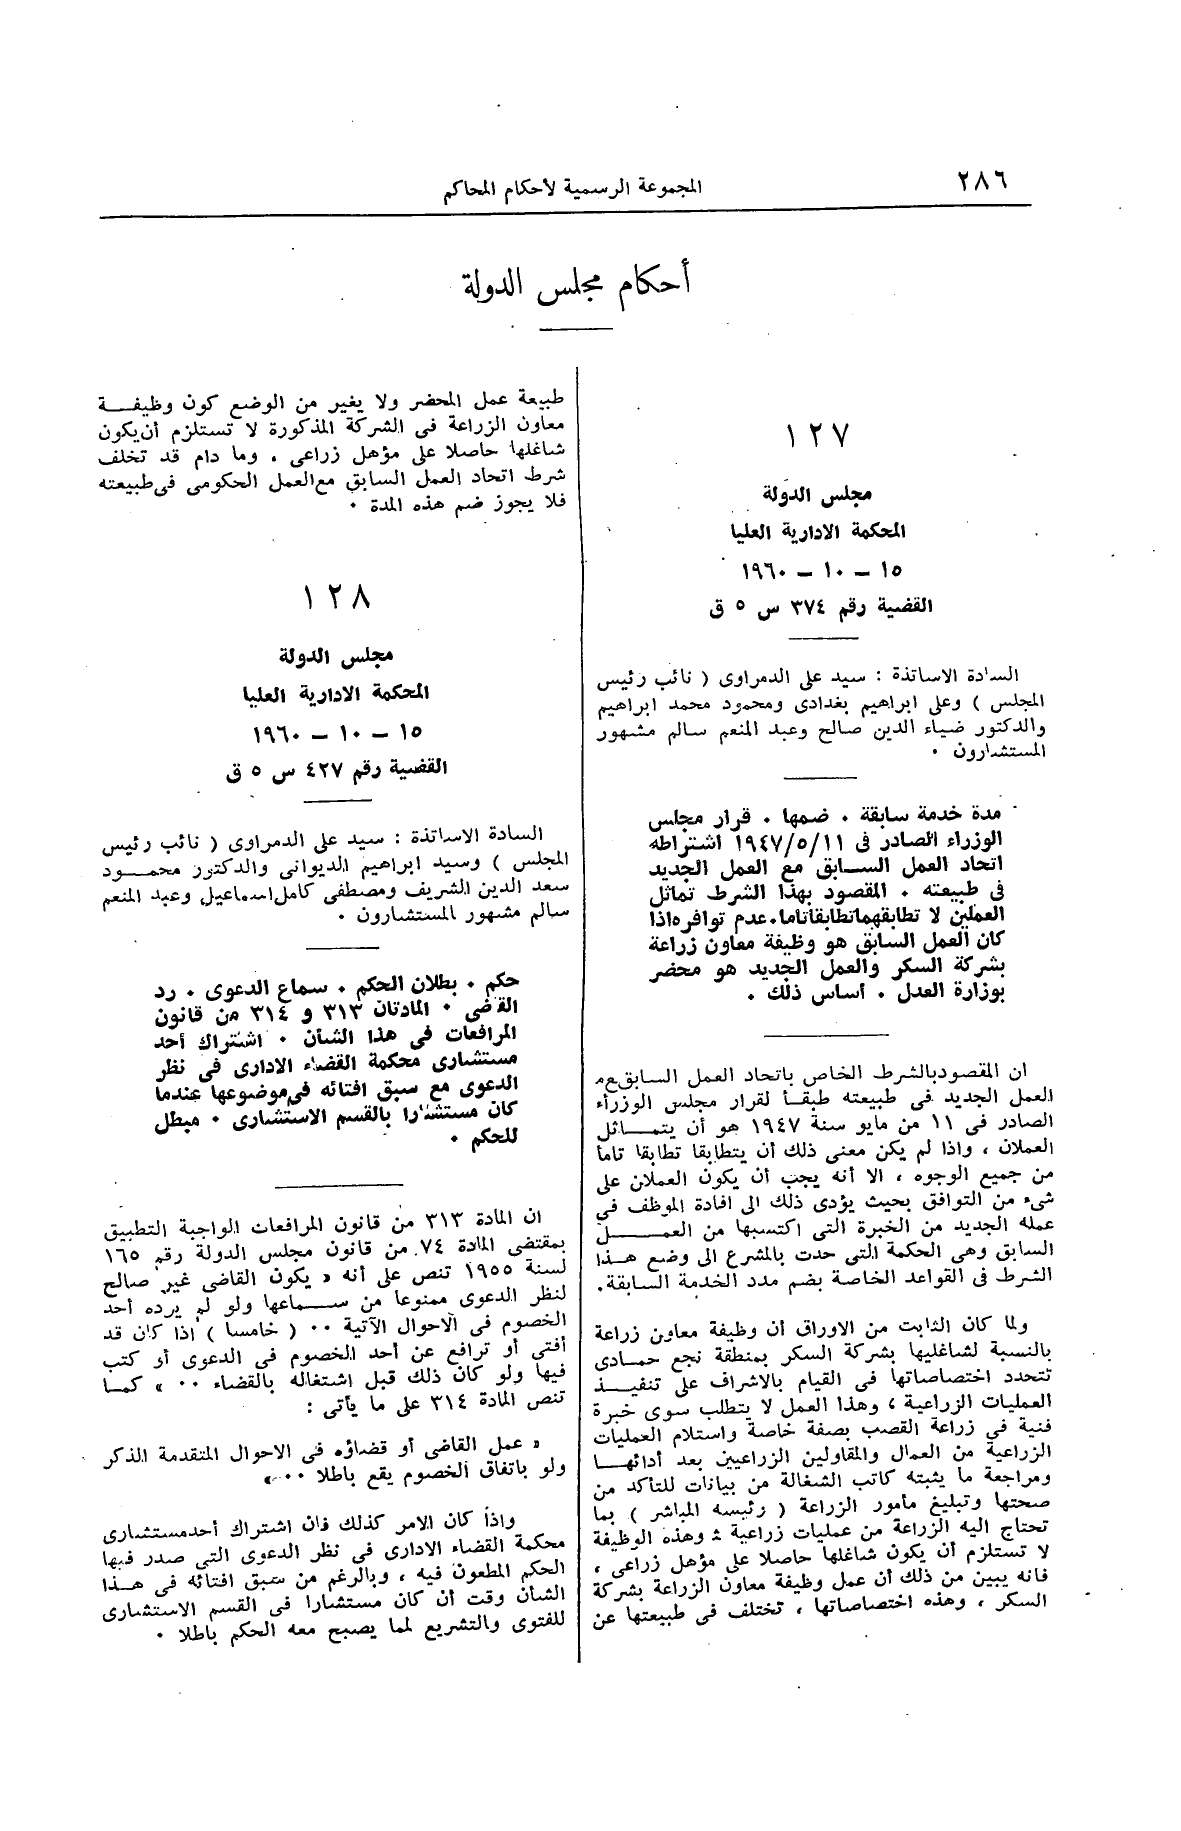 ٢٨٦
المجموعة الرسمية لأحكام المحاكم
أحكام مجلس الدولة
١٢٧
مجلس الدولة
المحكمة الادارية العليا
١٥ – ١٠ – ١٩٦٠
القضية رقم ٣٧٤ س ٥ ق
السادة الاساتذة : سيد على الدمراوى ( نائب رئيس
المجلس ) وعلى ابراهيم بغدادى ومحمود محمد ابراهيم
والدكتور ضياء الدين صالح وعبد المنعم سالم مشهور
المستشارون ٠
مدة خدمة سابقة ٠ ضمها ٠ قرار مجلس
الوزراء الصادر فى ١٩٤٧/٥/١١ اشتراطه
اتحاد العمل السابق مع العمل الجديد
فى طبيعته ٠ المقصود بهذا الشرط تماثل
العملين لا تطابقهما تطابقا تاما ٠ عدم توافره اذا
كان العمل السابق هو وظيفة معاون زراعة
بشركة السكر والعمل الجديد هو محضر
بوزارة العدل ٠ أساس ذلك ٠
ان المقصود بالشرط الخاص باتحاد العمل السابق مع
العمل الجديد فى طبيعته طبقا لقرار مجلس الوزراء
الصادر فى ١١ من مايو سنة ١٩٤٧ هو أن يتماثل
العملان ، واذا لم يكن معنى ذلك أن يتطابقا تطابقا تاما
من جميع الوجوه ، الا أنه يجب أن يكون العملان على
شىء من التوافق بحيث يؤدى ذلك الى افادة الموظف فى
عمله الجديد من الخبرة التى اكتسبها من العمل
السابق وهى الحكمة التى حدت بالمشرع الى وضع هذا
الشرط فى القواعد الخاصة بضم مدد الخدمة السابقة ٠
ولما كان الثابت من الاوراق أن وظيفة معاون زراعة
بالنسبة لشاغليها بشركة السكر بمنطقة نجع حمادى
تتحدد اختصاصاتها فى القيام بالاشراف على تنفيذ
العمليات الزراعية ، وهذا العمل لا يتطلب سوى خبرة
فنية فى زراعة القصب بصفة خاصة واستلام العمليات
الزراعية من العمال والمقاولين الزراعيين بعد أدائها
ومراجعة ما يثبته كاتب الشغالة من بيانات للتأكد من
صحتها وتبليغ مأمور الزراعة ( رئيسه المباشر ) بما
تحتاج اليه الزراعة من عمليات زراعية ; وهذه الوظيفة
لا تستلزم أن يكون شاغلها حاصلا على مؤهل زراعى ،
فانه يبين من ذلك أن عمل وظيفة معاون الزراعة بشركة
السكر ، وهذه اختصاصاتها ، تختلف فى طبيعتها عن
طبيعة عمل المحضر ولا يغير من الوضع كون وظيفة
معاون الزراعة فى الشركة المذكورة لا تستلزم أن يكون
شاغلها حاصلا على مؤهل زراعى ، وما دام قد تخلف
شرط اتحاد العمل السابق مع العمل الحكومى فى طبيعته
فلا يجوز ضم هذه المدة ٠
١٢٨
مجلس الدولة
المحكمة الادارية العليا
١٥ – ١٠ – ١٩٦٠
القضية رقم ٤٢٧ س ٥ ق
السادة الاساتذة : سيد على الدمراوى ( نائب رئيس
المجلس ) وسيد ابراهيم الديوانى والدكتور محمود
سعد الدين الشريف ومصطفى كامل اسماعيل وعبد المنعم
سالم مشهور المستشارون ٠
حكم ٠ بطلان الحكم ٠ سماع الدعوى ٠ رد
القاضى ٠ المادتان ٣١٣ و ٣١٤ من قانون
المرافعات فى هذا الشأن ٠ اشتراك أحد
مستشارى محكمة القضاء الادارى فى نظر
الدعوى مع سبق افتائه فى موضوعها عندما
كان مستشارا بالقسم الاستشارى ٠ مبطل
للحكم ٠
ان المادة ٣١٣ من قانون المرافعات الواجبة التطبيق
بمقتضى المادة ٧٤ من قانون مجلس الدولة رقم ١٦٥
لسنة ١٩٥٥ تنص على أنه « يكون القاضى غير صالح
لنظر الدعوى ممنوعا من سماعها ولو لم يرده أحد
الخصوم فى الاحوال الآتية ٠٠ ( خامسا ) اذا كان قد
أفتى أو ترافع عن أحد الخصوم فى الدعوى أو كتب
فيها ولو كان ذلك قبل اشتغاله بالقضاء ٠٠ » كما
تنص المادة ٣١٤ على ما يأتى :
« عمل القاضى أو قضاؤه فى الاحوال المتقدمة الذكر
ولو باتفاق الخصوم يقع باطلا ٠٠ »
واذا كان الامر كذلك فان اشتراك أحد مستشارى
محكمة القضاء الادارى فى نظر الدعوى التى صدر فيها
الحكم المطعون فيه ، وبالرغم من سبق افتائه فى هذا
الشأن وقت أن كان مستشارا فى القسم الاستشارى
للفتوى والتشريع لمما يصبح معه الحكم باطلا ٠